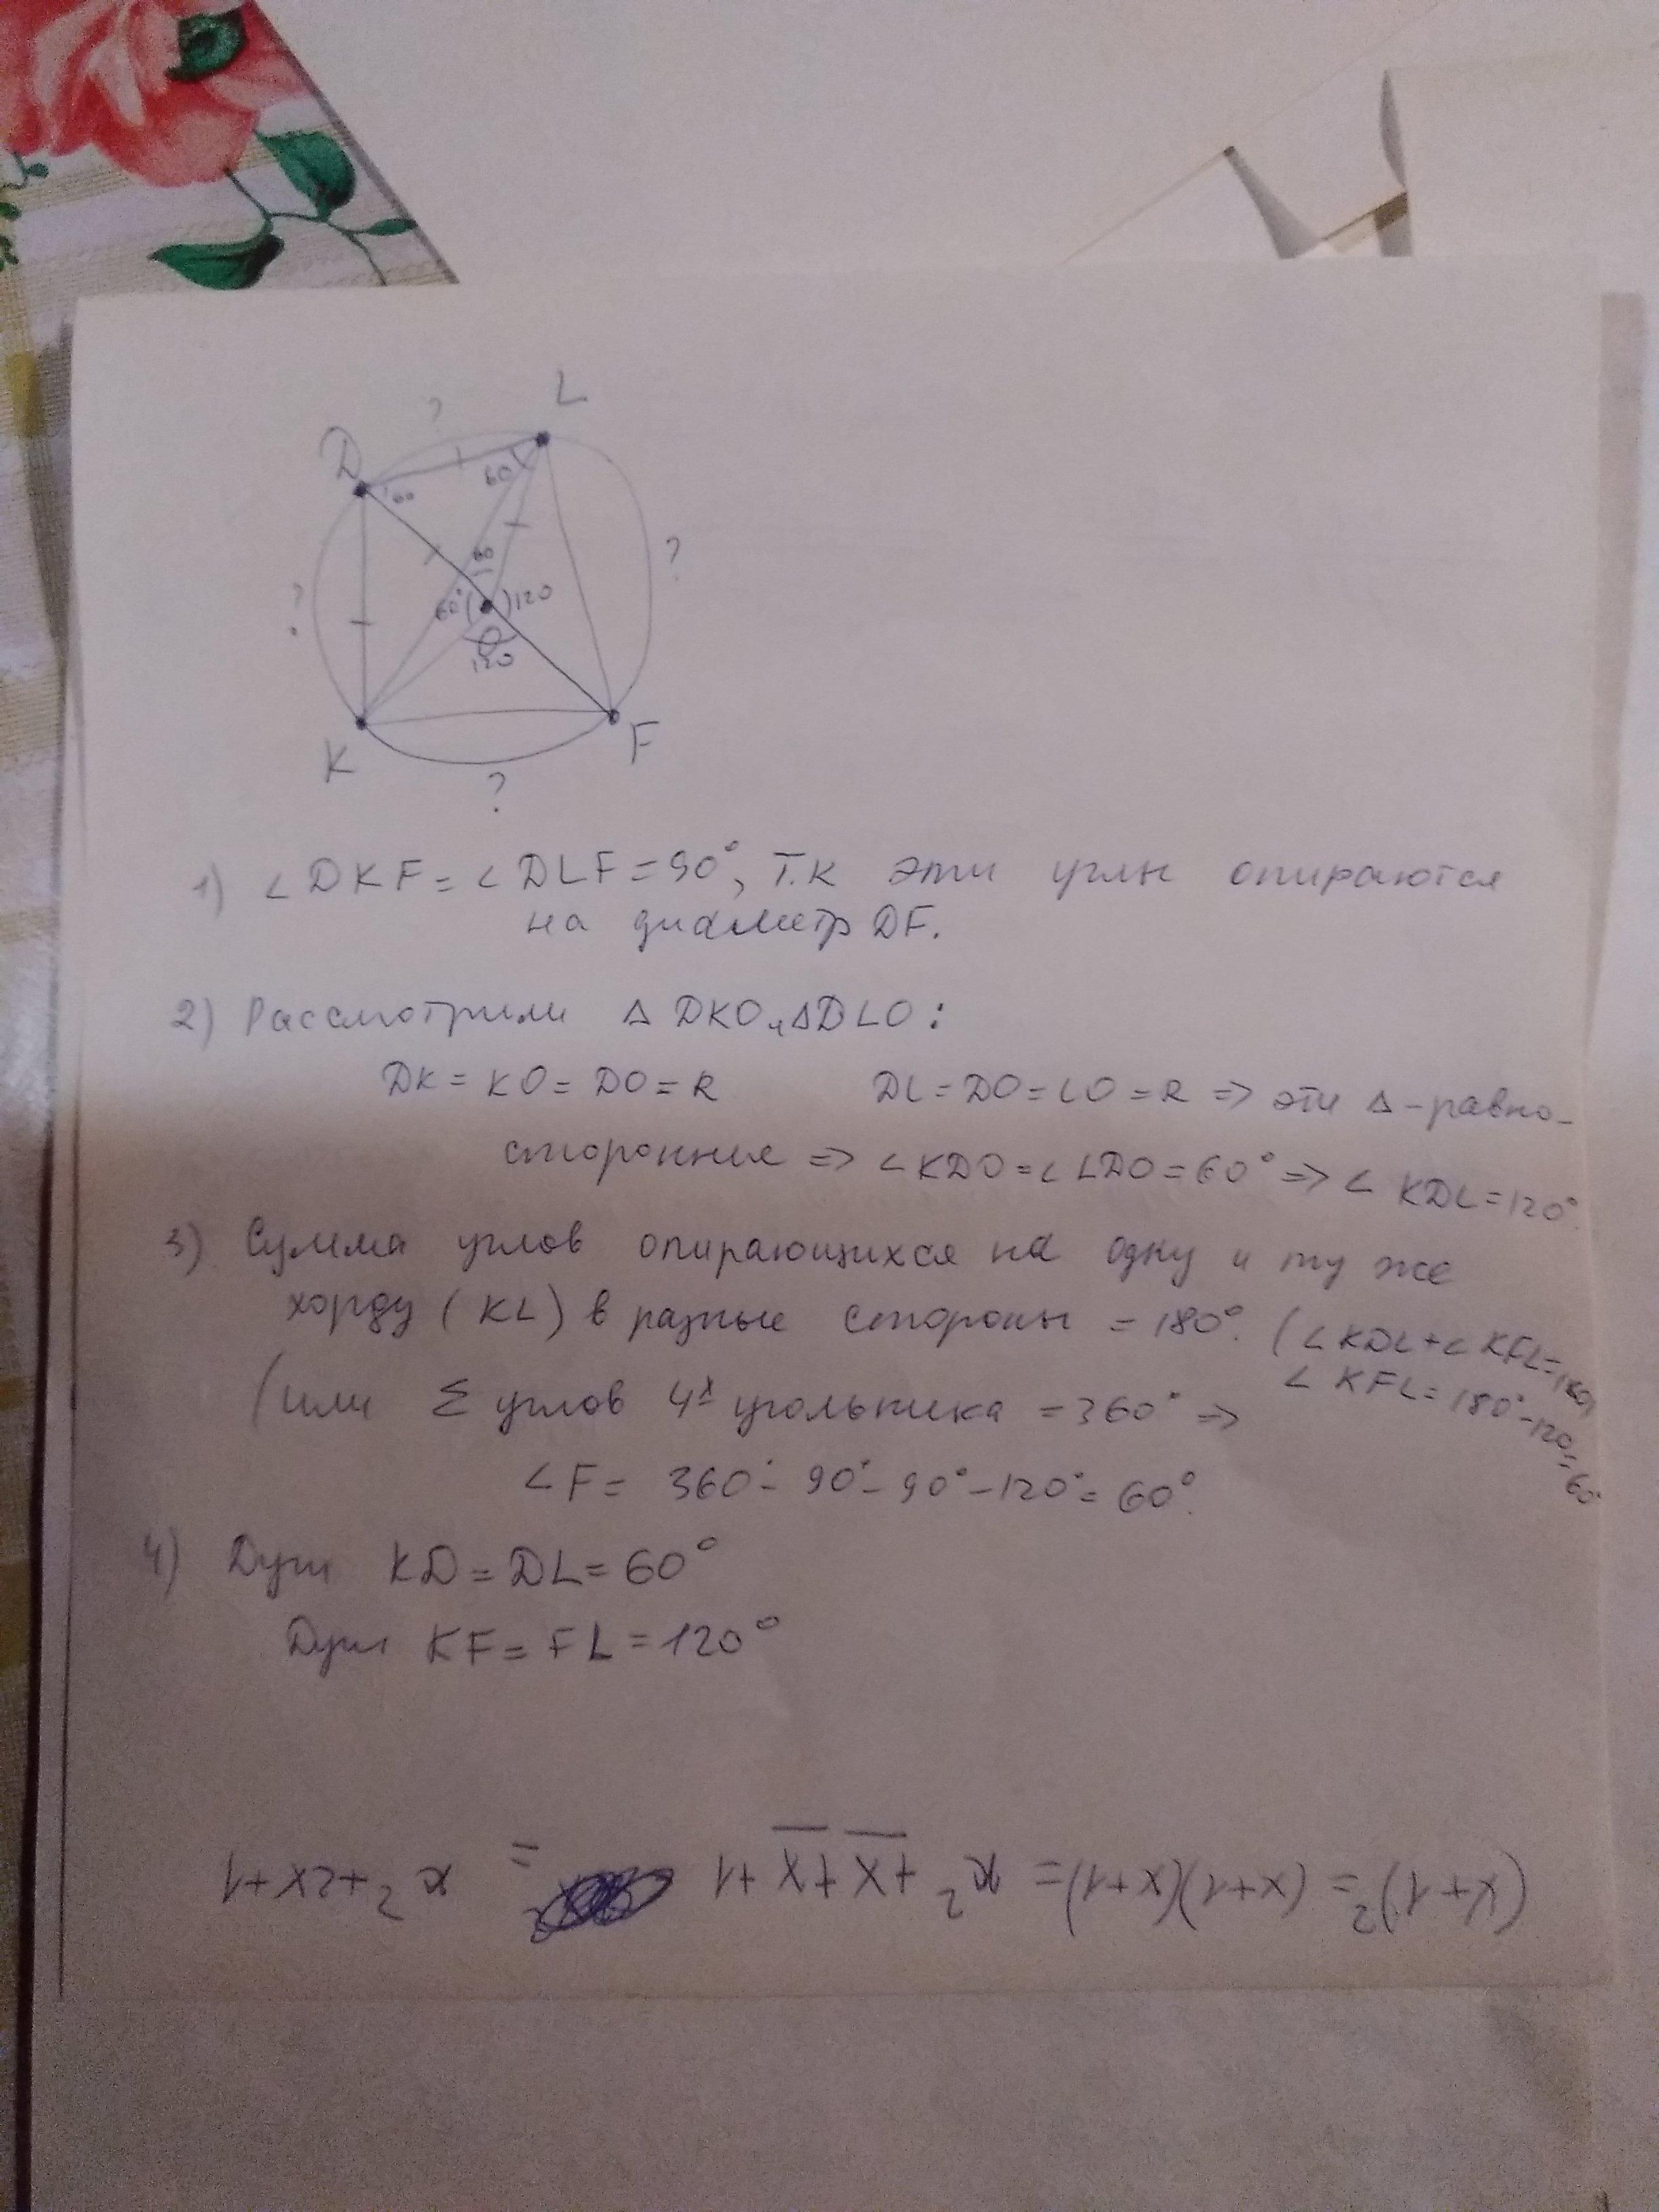 L
?
D
60
60
?
60
?
60° 120
O
120
K
F
?
1) ∠DKF = ∠DLF = 90°, т.к эти углы опираются
на диаметр DF.
2) Рассмотрим Δ DKO и ΔDLO:
DK = KO = DO = R DL = DO = LO = R => эти Δ - равно-
сторонние => ∠KDO = ∠LDO = 60° => ∠ KDL = 120°.
3) Сумма углов опирающихся на одну и ту же
хорду (KL) в разные стороны = 180°. (∠KDL + ∠KFL = 180,
∠ KFL = 180° - 120 = 60°
(или Σ углов 4х угольника = 360° =>
∠F = 360° - 90° - 90° - 120° = 60°.
4) Дуги KD = DL = 60°
Дуги KF = FL = 120°
(x+1)² = (x+1)(x+1) = x² + x + x + 1 = x² + 2x + 1